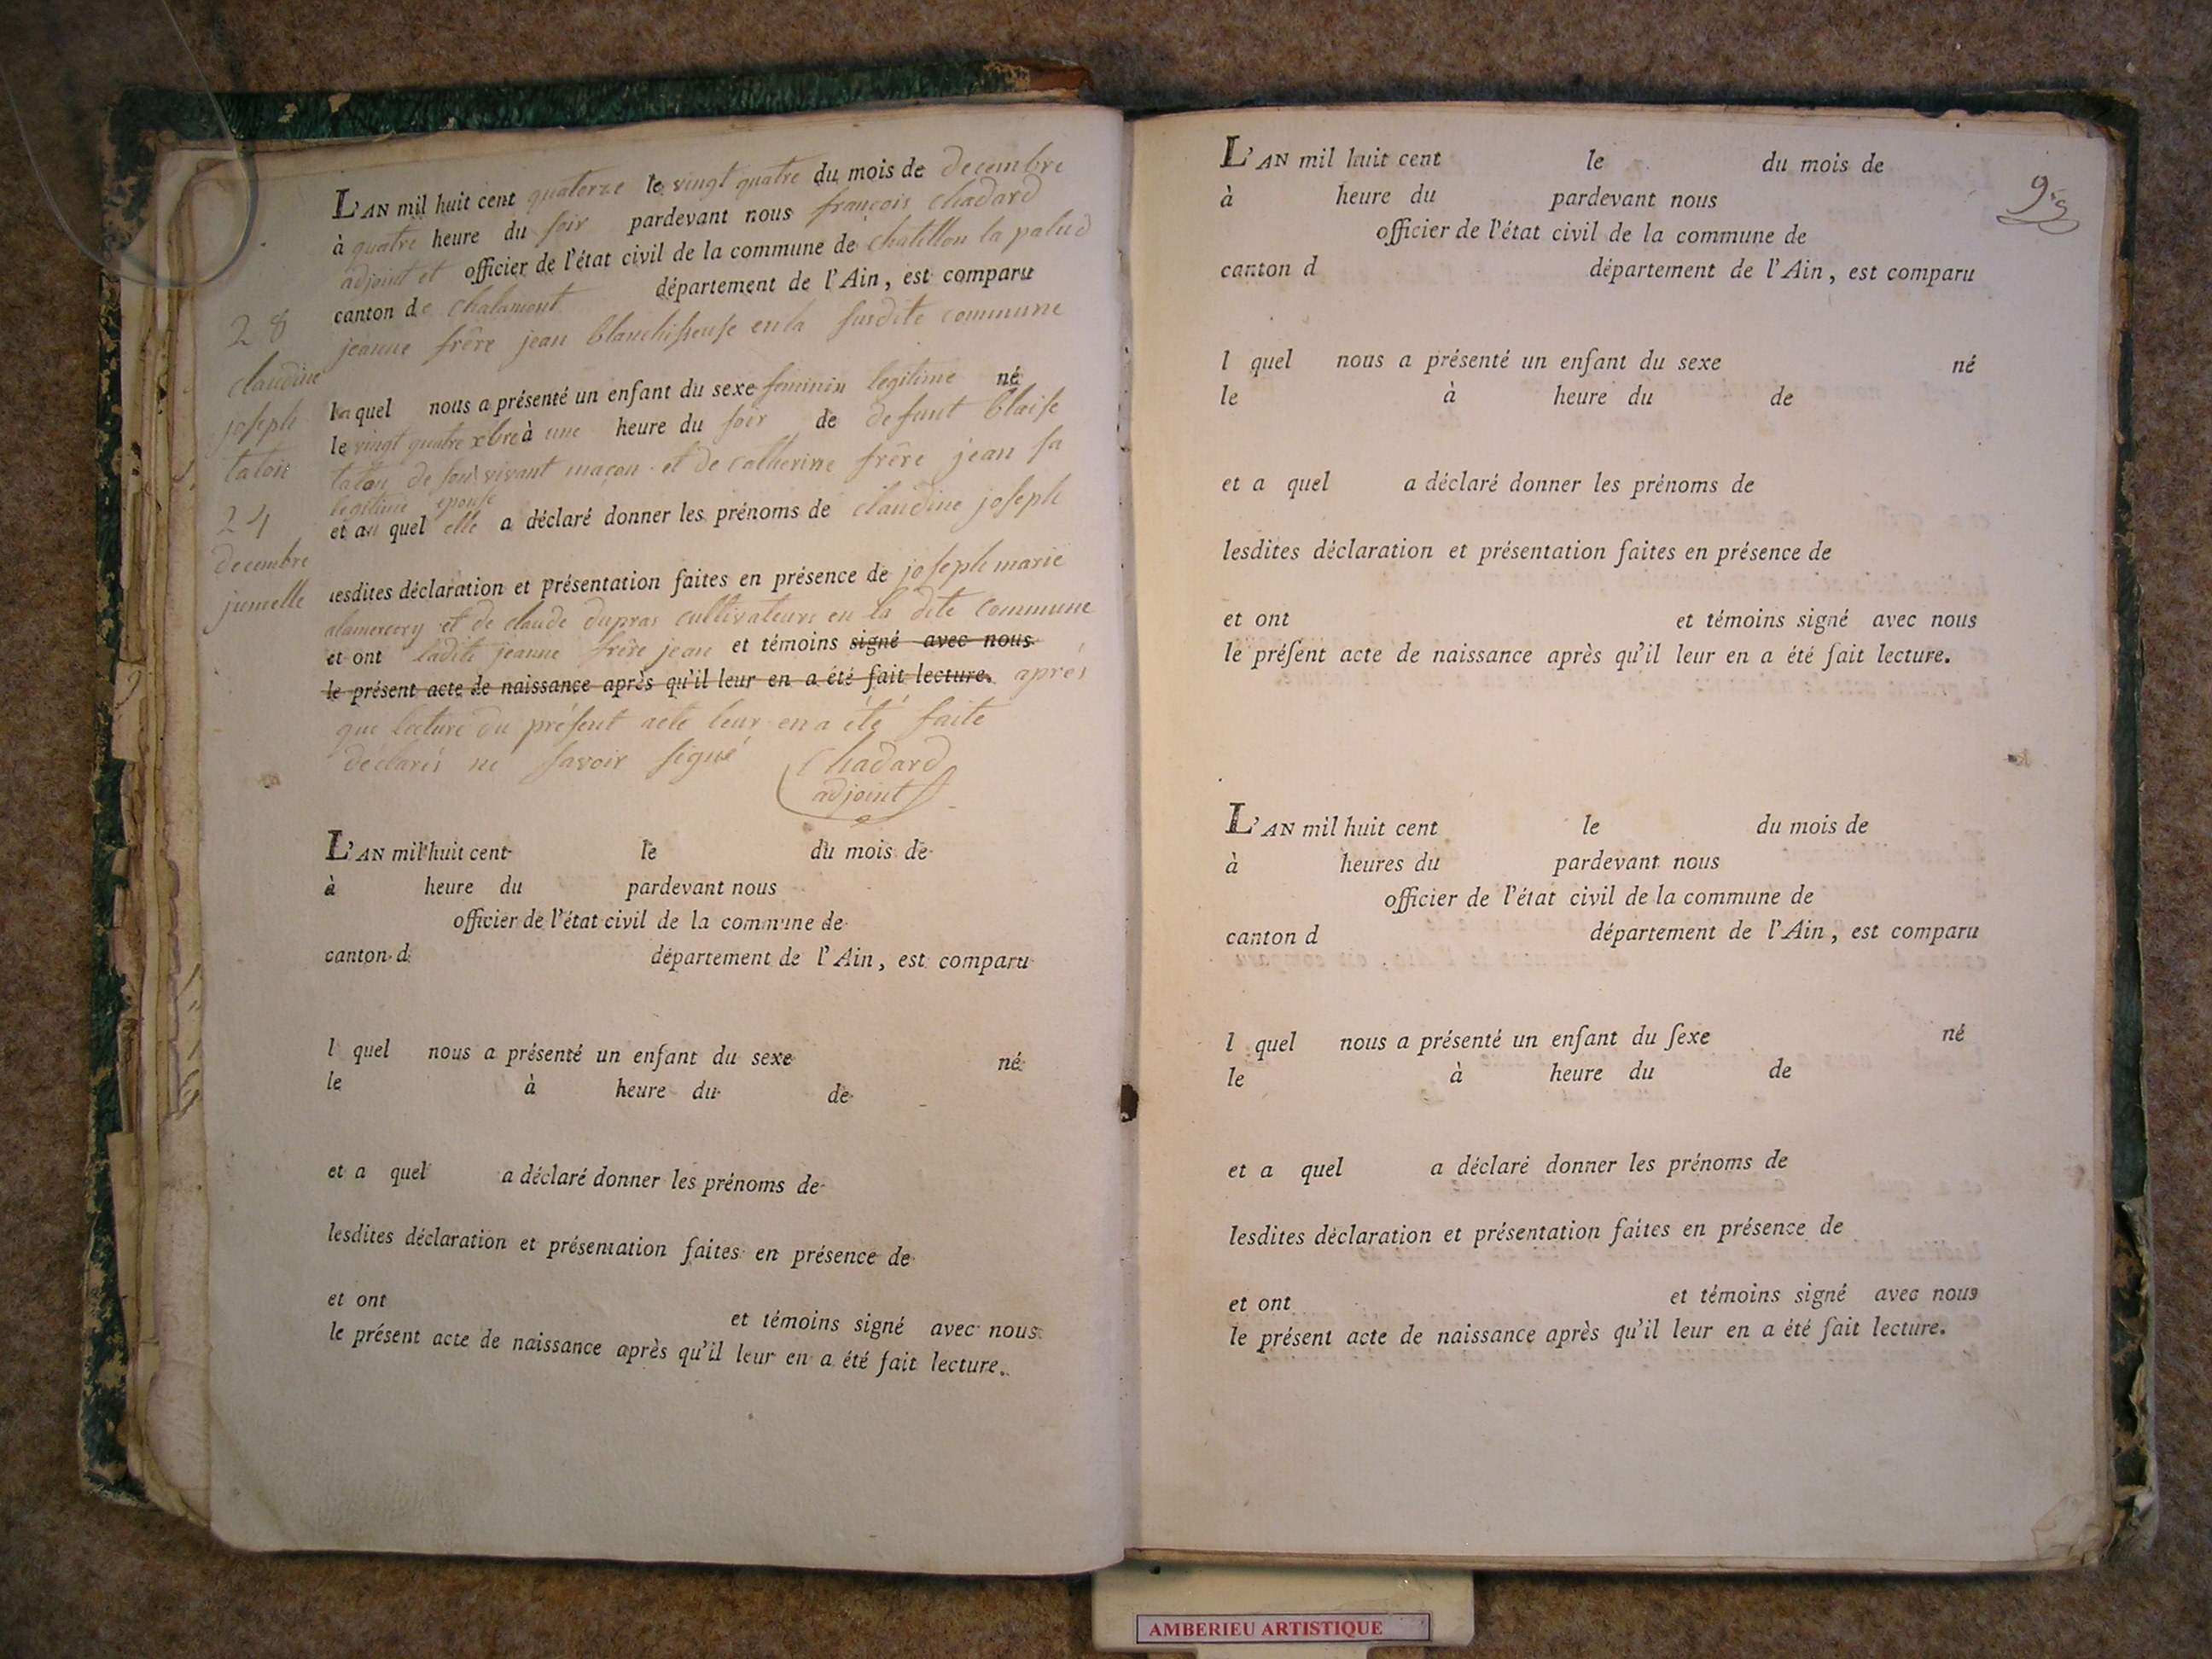 L'AN mil huit cent quatorze le vingt quatre du mois de decembre
à quatre heure du soir pardevant nous françois Chadard
adjoint et officier de l'état civil de la commune de chatillon la palud
canton de chalamont département de l'Ain, est comparu
jeanne frère jean blanchisseuse en la susdite commune
laquel nous a présenté un enfant du sexe feminin legitime né
le vingt quatre xbre à une heure du soir de defunt blaise
taton de son vivant maçon et de catherine frère jean sa
legitime epouse
et au quel elle a déclaré donner les prénoms de claudine joseph
lesdites déclaration et présentation faites en présence de joseph marie
et de claude dupras cultivateurs en la dite commune
et ont ladite jeanne frère jean et témoins signé avec nous
le présent acte de naissance après qu'il leur en a été fait lecture. après
que lecture du présent acte leur en a été faite
déclarés ne savoir signé
Chadard
adjoint
28
claudine
joseph
taton
24
decembre
jumelle
L'AN mil huit cent le du mois de
à heure du pardevant nous
officier de l'état civil de la commune de
canton d département de l'Ain, est comparu
l quel nous a présenté un enfant du sexe né
le à heure du de
et a quel a déclaré donner les prénoms de
lesdites déclaration et présentation faites en présence de
et ont et témoins signé avec nous
le présent acte de naissance après qu'il leur en a été fait lecture.
L'AN mil huit cent le du mois de
à heure du pardevant nous
officier de l'état civil de la commune de
canton d département de l'Ain, est comparu
l quel nous a présenté un enfant du sexe né
le à heure du de
et a quel a déclaré donner les prénoms de
lesdites déclaration et présentation faites en présence de
et ont et témoins signé avec nous
le préſent acte de naissance après qu'il leur en a été fait lecture.
L'AN mil huit cent le du mois de
à heures du pardevant nous
officier de l'état civil de la commune de
canton d département de l'Ain, est comparu
l quel nous a présenté un enfant du ſexe né
le à heure du de
et a quel a déclaré donner les prénoms de
lesdites déclaration et présentation faites en présence de
et ont et témoins signé avec nous
le présent acte de naissance après qu'il leur en a été fait lecture.
AMBERIEU ARTISTIQUE